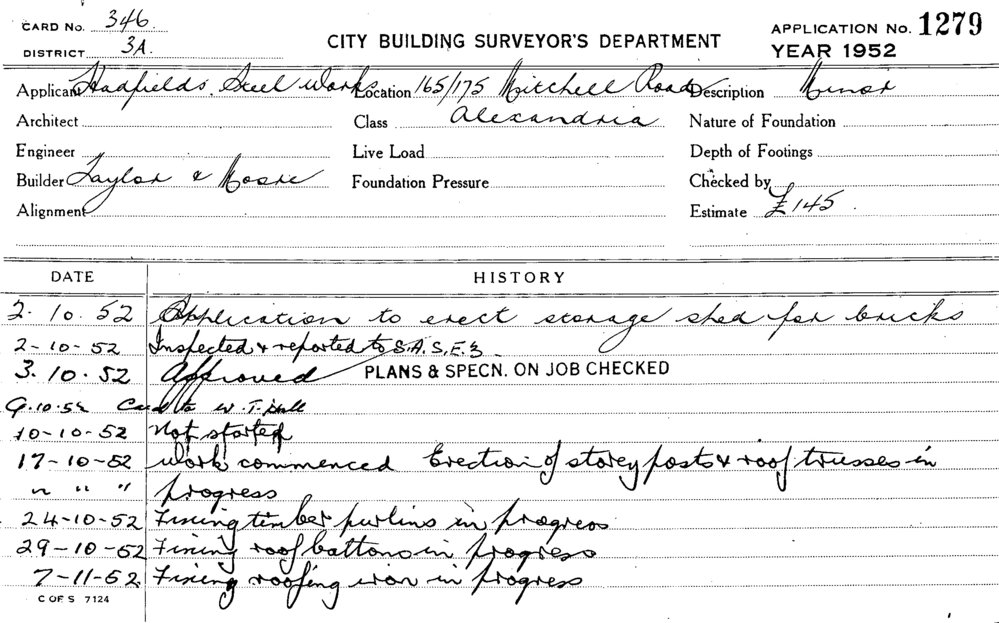 CARD No. 346
DISTRICT 3A.
CITY BUILDING SURVEYOR'S DEPARTMENT
APPLICATION No. 1279
YEAR 1952
Applicant Hadfields Steel Works Location 165/175 Mitchell Road Description Minor
Architect Class Alexandria Nature of Foundation
Engineer Live Load Depth of Footings
Builder Taylor & Moore Foundation Pressure Checked by
Alignment Estimate £145.
DATE HISTORY
2. 10. 52 Application to erect storage shed for bricks
2-10-52 Inspected & reported to S.A.S.E.3
3. 10. 52 Approved PLANS & SPECN. ON JOB CHECKED
9.10.52 Card to W. T. Hall
10-10-52 Not started
17-10-52 Work commenced Erection of storey posts & roof trusses in
" " " progress
24-10-52 Fixing timber purlins in progress
29-10-52 Fixing roof battons in progress
7-11-52 Fixing roofing iron in progress
C OF S 7124